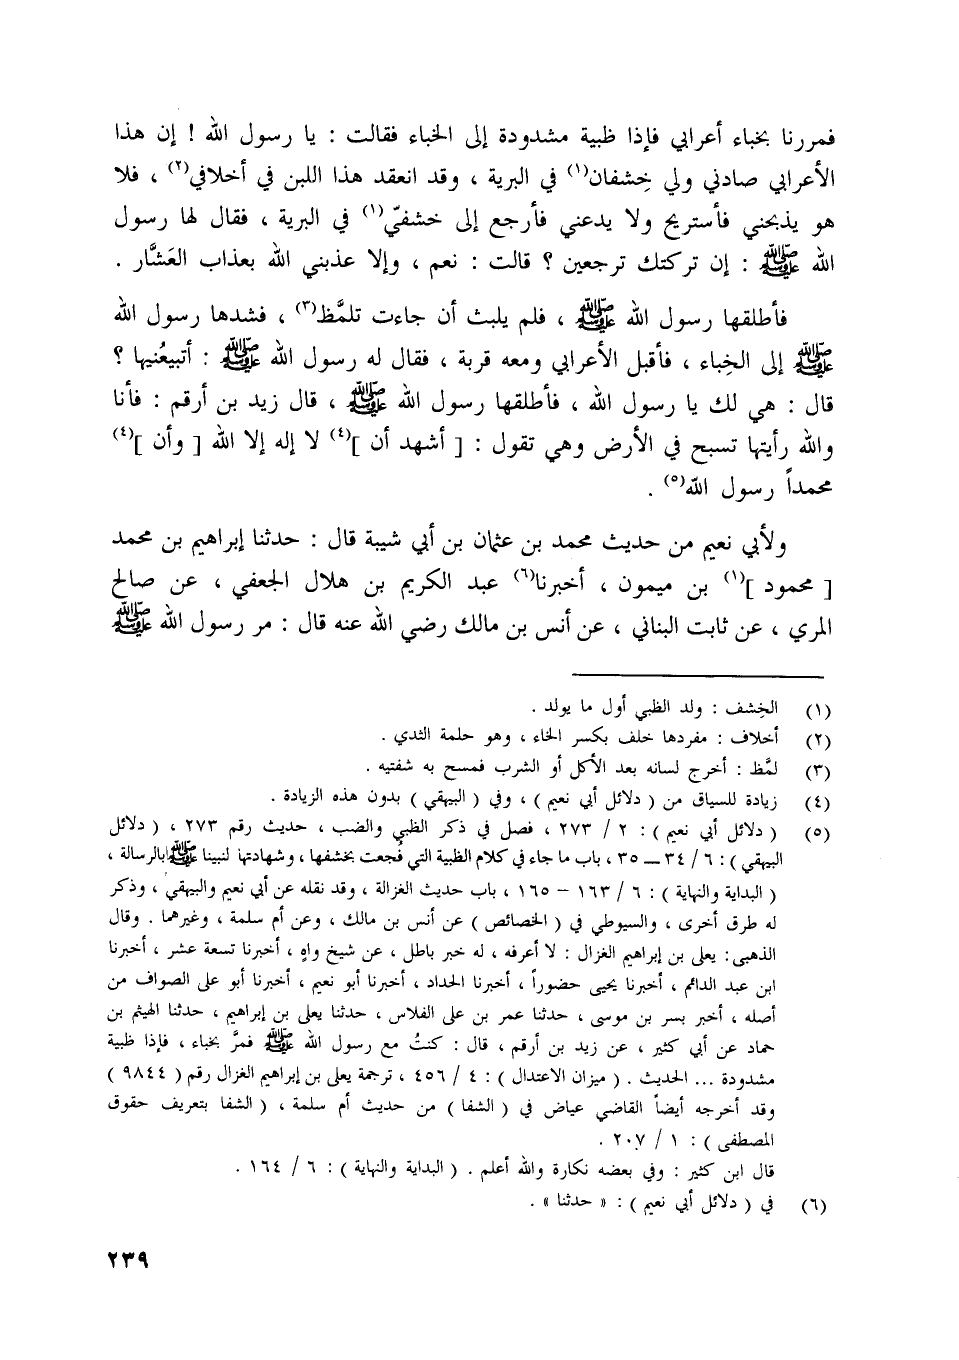 فمررنا بخباء أعرابي فإذا ظبية مشدودة إلى الخباء فقالت : يا رسول الله ! إن هذا
الأعرابي صادني ولي خِشفان(١) في البرية ، وقد انعقد هذا اللبن في أخلافي(٢) ، فلا
هو يذبحني فأستريح ولا يدعني فأرجع إلى خشفيّ(١) في البرية ، فقال لها رسول
الله ﷺ : إن تركتك ترجعين ؟ قالت : نعم ، وإلا عذبني الله بعذاب العَشَّار .
فأطلقها رسول الله ﷺ ، فلم يلبث أن جاءت تلمَّظ(٣) ، فشدها رسول الله
ﷺ إلى الخِباء ، فأقبل الأعرابي ومعه قربة ، فقال له رسول الله ﷺ : أتبيعُنيها ؟
قال : هي لك يا رسول الله ، فأطلقها رسول الله ﷺ ، قال زيد بن أرقم : فأنا
والله رأيتها تسبح في الأرض وهي تقول : [ أشهد أن ](٤) لا إله إلا الله [ وأن ](٤)
محمداً رسول الله(٥) .
ولأبي نعيم من حديث محمد بن عثمان بن أبي شيبة قال : حدثنا إبراهيم بن محمد
[ محمود ](١) بن ميمون ، أخبرنا(٦) عبد الكريم بن هلال الجعفي ، عن صالح
المري ، عن ثابت البناني ، عن أنس بن مالك رضي الله عنه قال : مر رسول الله ﷺ
(١) الخِشف : ولد الظبي أول ما يولد .
(٢) أخلاف : مفردها خلف بكسر الخاء ، وهو حلمة الثدي .
(٣) لمَّظ : أخرج لسانه بعد الأكل أو الشرب فمسح به شفتيه .
(٤) زيادة للسياق من ( دلائل أبي نعيم ) ، وفي ( البيهقي ) بدون هذه الزيادة .
(٥) ( دلائل أبي نعيم ) : ٢ / ٢٧٣ ، فصل في ذكر الظبي والضب ، حديث رقم ٢٧٣ ، ( دلائل
البيهقي ) : ٦ / ٣٤ — ٣٥ ، باب ما جاء في كلام الظبية التي فُجعت بخشفها ، وشهادتها لنبينا ﷺ بالرسالة ،
( البداية والنهاية ) : ٦ / ١٦٣ – ١٦٥ ، باب حديث الغزالة ، وقد نقله عن أبي نعيم والبيهقي ، وذكر
له طرق أخرى ، والسيوطي في ( الخصائص ) عن أنس بن مالك ، وعن أم سلمة ، وغيرهما . وقال
الذهبي : يعلى بن إبراهيم الغزال : لا أعرفه ، له خبر باطل ، عن شيخ واهٍ ، أخبرنا تسعة عشر ، أخبرنا
ابن عبد الدائم ، أخبرنا يحيى حضوراً ، أخبرنا الحداد ، أخبرنا أبو نعيم ، أخبرنا أبو على الصواف من
أصله ، أخبر بسر بن موسى ، حدثنا عمر بن على الفلاس ، حدثنا يعلى بن إبراهيم ، حدثنا الهيثم بن
حماد عن أبي كثير ، عن زيد بن أرقم ، قال : كنتُ مع رسول الله ﷺ فمرَّ بخباء ، فإذا ظبية
مشدودة ... الحديث . ( ميزان الاعتدال ) : ٤ / ٤٥٦ ، ترجمة يعلى بن إبراهيم الغزال رقم ( ٩٨٤٤ )
وقد أخرجه أيضاً القاضي عياض في ( الشفا ) من حديث أم سلمة ، ( الشفا بتعريف حقوق
المصطفى ) : ١ / ٢٠٧ .
قال ابن كثير : وفي بعضه نكارة والله أعلم . ( البداية والنهاية ) : ٦ / ١٦٤ .
(٦) في ( دلائل أبي نعيم ) : « حدثنا » .
٢٣٩